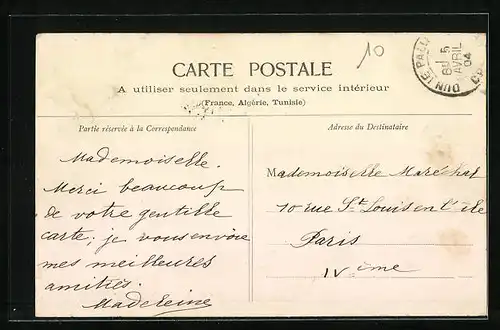 10
DUN-LE-PALL
5
AVRIL
04
CARTE POSTALE
A utiliser seulement dans le service intérieur
(France, Algérie, Tunisie)
Partie réservée à la Correspondance
Adresse du Destinataire
Mademoiselle.
Merci beaucoup
de votre gentille
carte; je vous envoie
mes meilleures
amitiés.
Madeleine
Mademoiselle Maréchal
10 rue St Louis en l'île
Paris
IVème